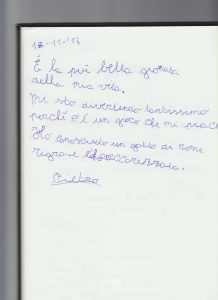 18-11-'13
È la più bella giornata
della mia vita.
Mi sto divertendo tantissimo
perché c'è un gioco che mi piace
Ho conosciuto un gatto di nome
e l'ho
Pietro